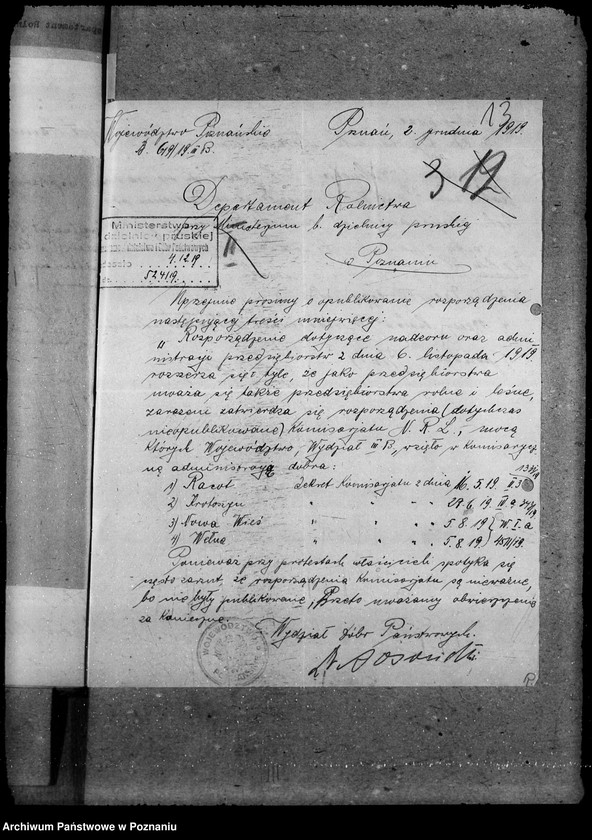 13
Województwo Poznańskie
Poznań, 2. grudnia 1919.
3 12
Departament Rolnictwa
przy Ministerjum b. dzielnicy pruskiej
w Poznaniu
Ministerstwo
dzielnicy pruskiej
4.12.19
524/19
II
Uprzejmie prosimy o opublikowanie rozporządzenia
następującej treści mniejwięcej:
„Rozporządzenie dotyczące nadzoru oraz admi-
nistracji przedsiębiorstw z dnia 6. listopada 1919
rozszerza się o tyle, że jako przedsiębiorstwa
uważa się także przedsiębiorstwa rolne i leśne,
zarazem zatwierdza się rozporządzenia (dotychczas
nieopublikowane) Komisarjatu N. R. L., mocą
których Województwo, Wydział III B, wzięło w komisarycz-
ną administrację dobra:
1) Racot dekret Komisarjatu z dnia 16. 5. 19
2) Krotoszyn " " " 29. 6. 19
3) Nowa Wieś " " " 5. 8. 19 W. I. a
4) Wełna " " " 5. 8. 19
Ponieważ przy protestach właścicieli spotyka się
często zarzut, że rozporządzenia Komisarjatu są nieważne,
bo nie były publikowane, przeto uważamy obwieszczenie
za konieczne.
Wydział Dóbr Państwowych.
Archiwum Państwowe w Poznaniu